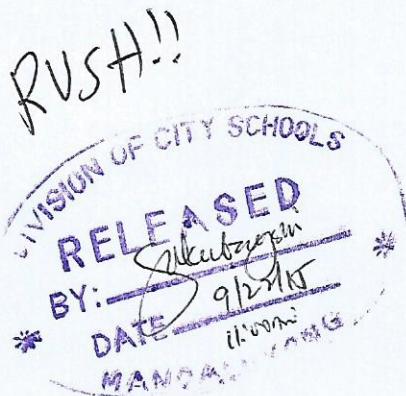 RUSH!!
DIVISION OF CITY SCHOOLS
RELEASED
BY:
DATE 9/22/15
MANDALUYONG